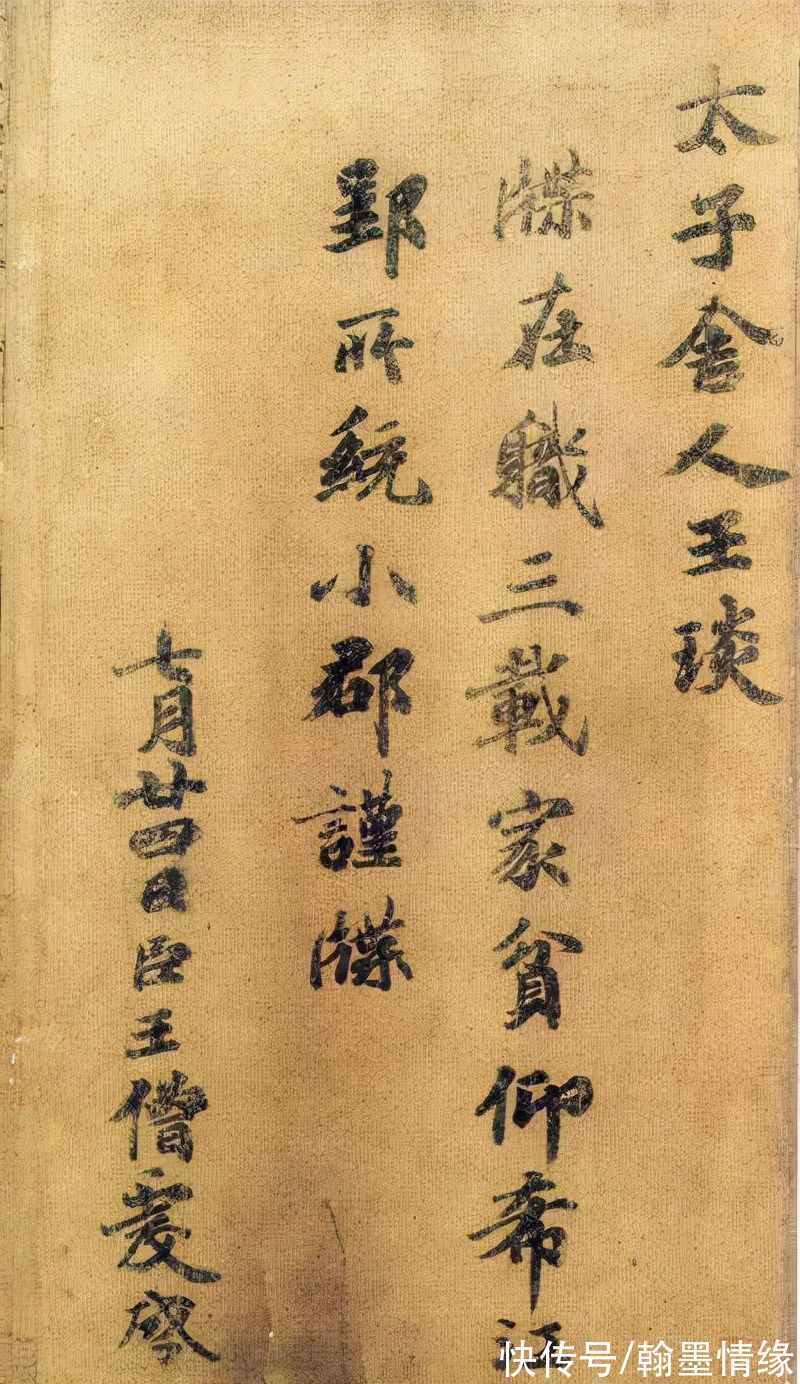 太子舍人王琰
牒在職三載家貧仰希江
郢所統小郡謹牒
七月廿四日臣王僧虔啓
快传号/翰墨情缘